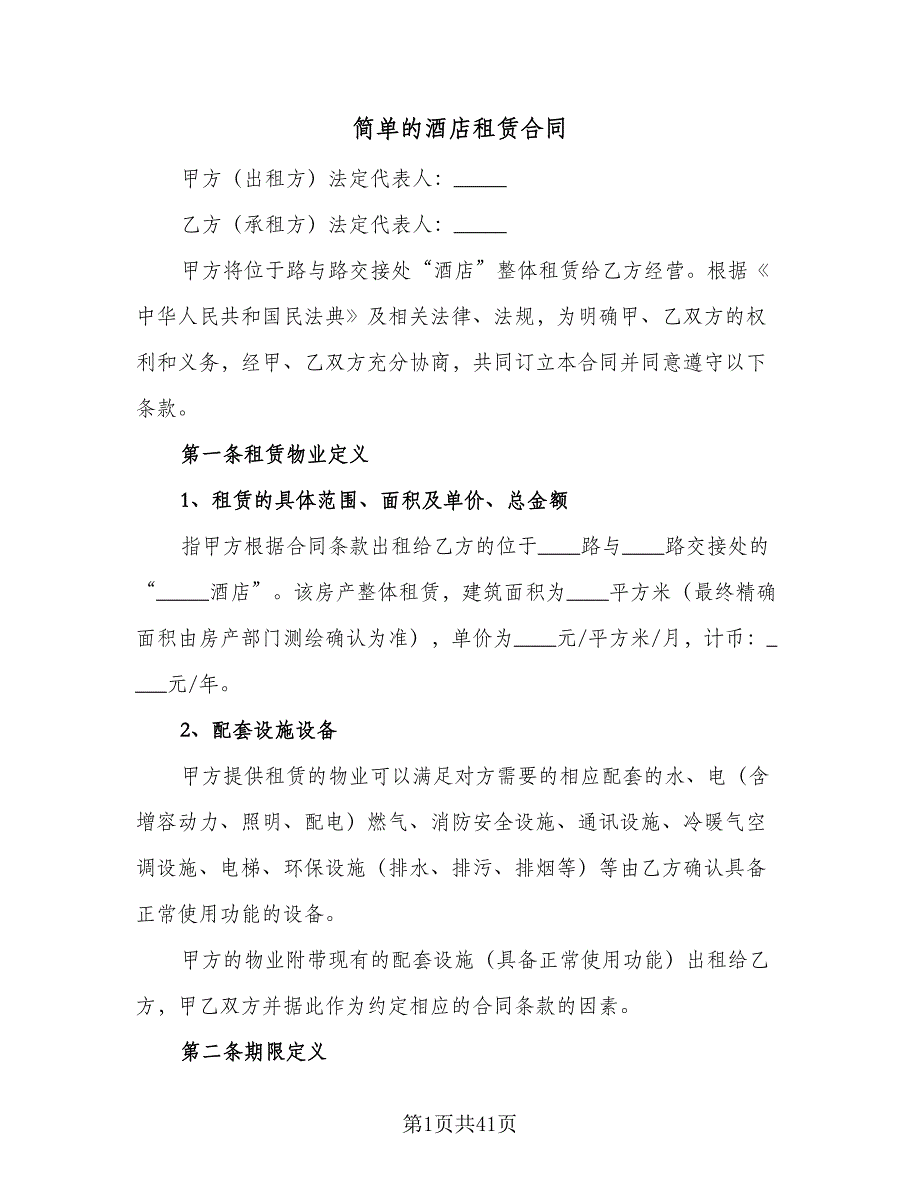 简单的酒店租赁合同
甲方（出租方）法定代表人：_____
乙方（承租方）法定代表人：_____
甲方将位于路与路交接处“酒店”整体租赁给乙方经营。根据《
中华人民共和国民法典》及相关法律、法规，为明确甲、乙双方的权
利和义务，经甲、乙双方充分协商，共同订立本合同并同意遵守以下
条款。
第一条租赁物业定义
1、租赁的具体范围、面积及单价、总金额
指甲方根据合同条款出租给乙方的位于____路与____路交接处的
“_____酒店”。该房产整体租赁，建筑面积为____平方米（最终精确
面积由房产部门测绘确认为准），单价为____元/平方米/月，计币：_
___元/年。
2、配套设施设备
甲方提供租赁的物业可以满足对方需要的相应配套的水、电（含
增容动力、照明、配电）燃气、消防安全设施、通讯设施、冷暖气空
调设施、电梯、环保设施（排水、排污、排烟等）等由乙方确认具备
正常使用功能的设备。
甲方的物业附带现有的配套设施（具备正常使用功能）出租给乙
方，甲乙双方并据此作为约定相应的合同条款的因素。
第二条期限定义
第1页共41页